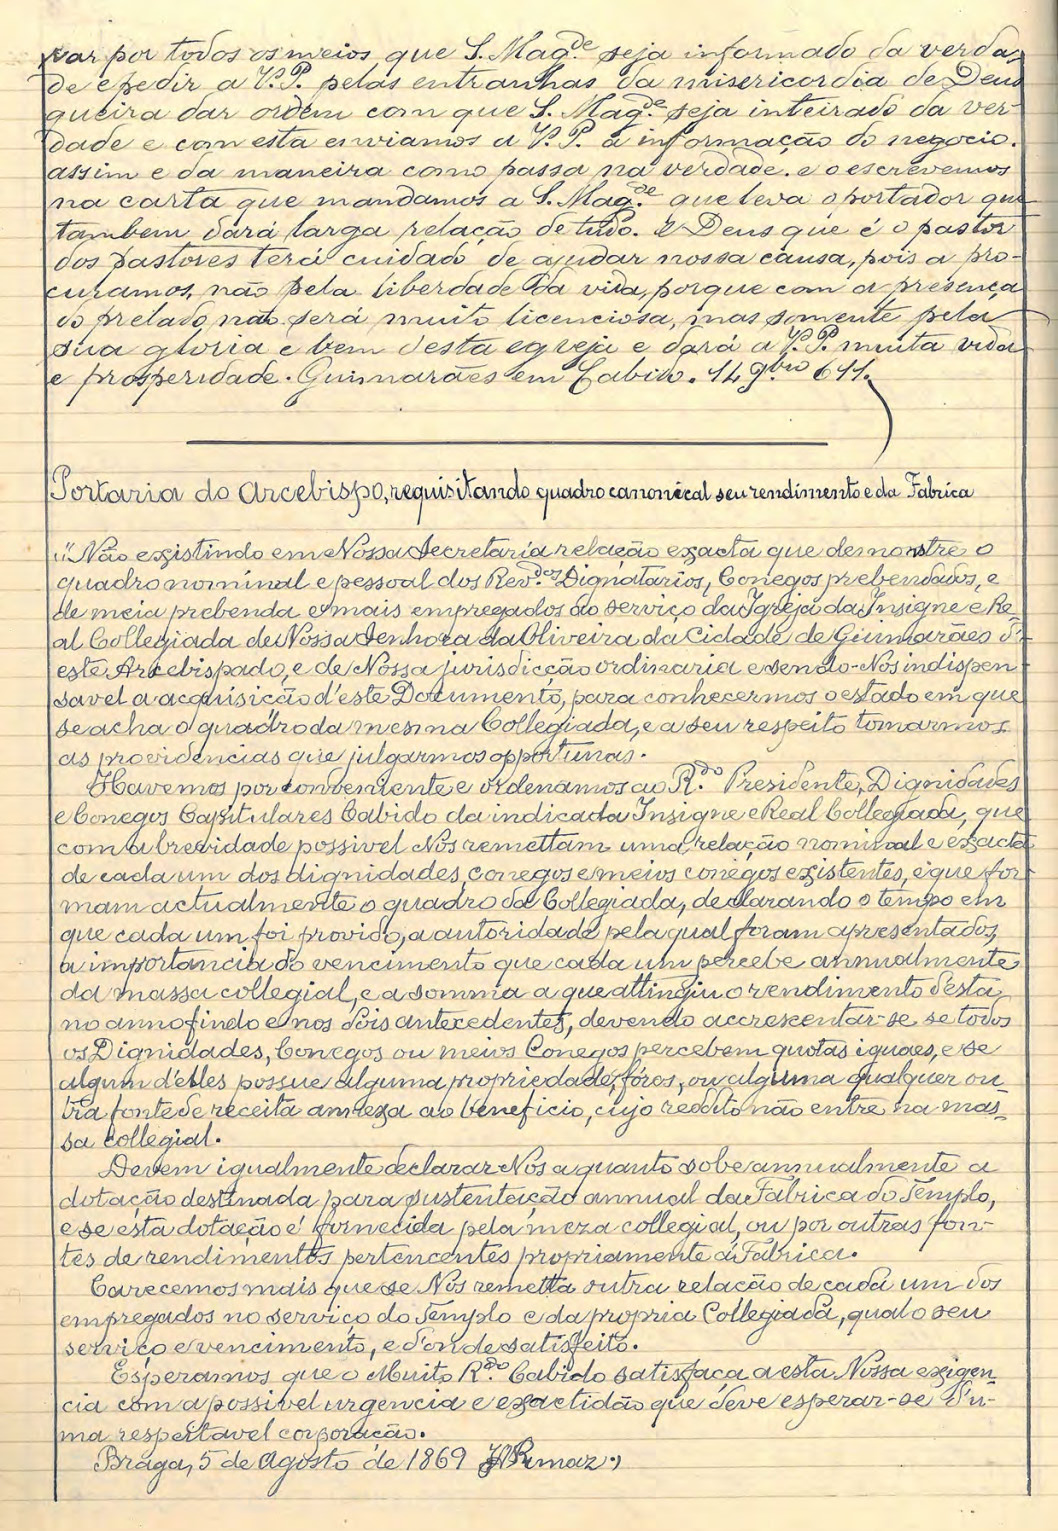 var por todos os meios, que S. Mag.de seja informado da verda-
de e pedir a V. P. pelas entranhas da misericordia de Deus
queira dar ordem com que S. Mag.de seja inteirado da ver-
dade e com esta enviamos a V. P. a informação do negocio.
assim e da maneira como passa na verdade. e o escrevemos
na carta que mandamos a S. Mag.de que leva o portador que
tambem dará larga relação de tudo. E Deus que é o pastor
dos pastores terá cuidado de ajudar nossa causa, pois a pro-
curamos, não pela liberdade da vida, porque com a presença
do prelado não será muito licenciosa, mas somente pela
sua gloria e bem desta egreja e dará a V. P. muita vida
e prosperidade. Guimarães em Cabido. 14 9.bro 611.
Portaria do Arcebispo, requisitando quadro canonical seu rendimento e da Fabrica
"Não existindo em Nossa Secretaria relação exacta que demonstre o
quadro nominal e pessoal dos Rev.dos Dignatarios, Conegos prebendados, e
de meia prebenda e mais empregados ao serviço da Igreja da Insigne e Re-
al Collegiada de Nossa Senhora da Oliveira da Cidade de Guimarães d'-
este Arcebispado, e de Nossa jurisdicção ordinaria e sendo-Nos indispen-
savel a acquisição d'este Documento, para conhecermos o estado em que
se acha o quadro da mesma Collegiada, e a seu respeito tomarmos
as providencias que julgarmos opportunas.
Havemos por conveniente e ordenamos ao R.do Presidente, Dignidades
e Conegos Capitulares Cabido da indicada Insigne e Real Collegiada, que
com a brevidade possivel Nos remettam uma relação nominal e exacta
de cada um dos dignidades, conegos e meios conegos existentes, e que for-
mam actualmente o quadro da Collegiada, declarando o tempo em
que cada um foi provido, a autoridade pela qual foram apresentados,
a importancia do vencimento que cada um percebe annualmente
da massa collegial, e a somma a que attingiu o rendimento desta
no anno findo e nos dois antecedentes, devendo accrescentar-se se todos
os Dignidades, Conegos ou meios Conegos percebem quotas iguaes, e se
algum d'elles possue alguma propriedade, fóros, ou alguma qualquer ou-
tra fonte de receita annexa ao beneficio, cujo redito não entre na mas-
sa collegial.
Devem igualmente declarar Nos a quanto sobe annualmente a
dotação destinada para sustentação annual da Fabrica do Templo,
e se esta dotação é fornecida pela meza collegial, ou por outras fon-
tes de rendimentos pertencentes propriamente á Fabrica.
Carecemos mais que se Nos remetta outra relação de cada um dos
empregados no serviço do Templo e da propria Collegiada, qual o seu
serviço e vencimento, e d'onde satisfeito.
Esperamos que o Muito R.do Cabido satisfaça a esta Nossa exigen-
cia com a possivel urgencia e exactidão que deve esperar-se d'u-
ma respeitavel corporação.
Braga, 5 de Agosto de 1869